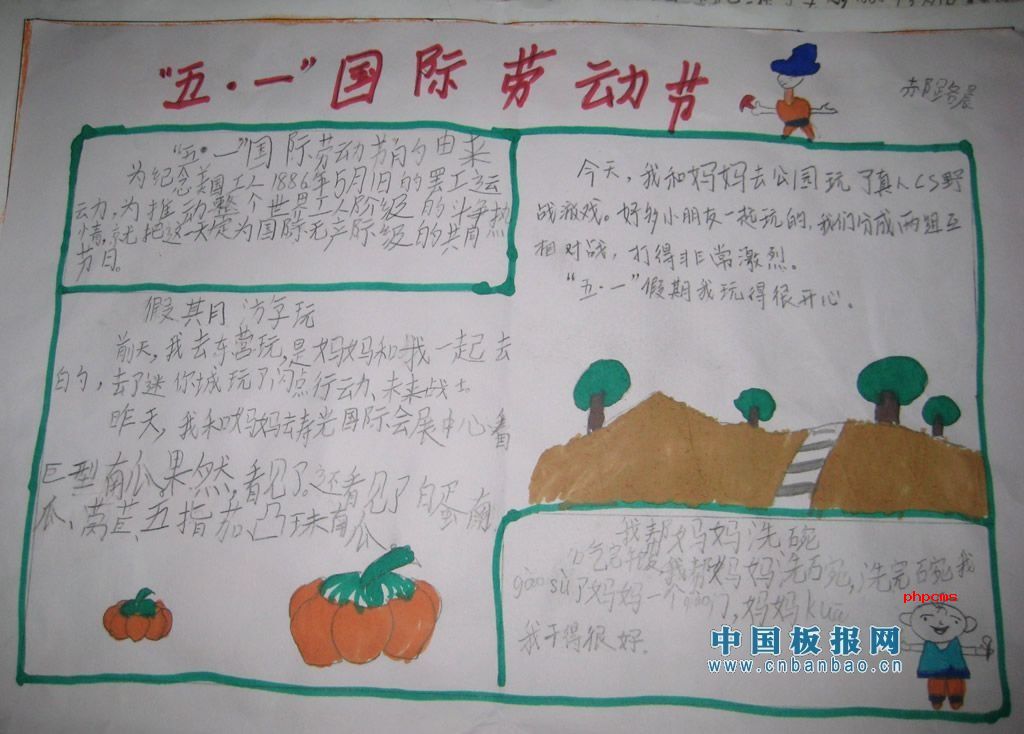 “五·一”国际劳动节
“五·一”国际劳动节的由来
为纪念美国工人1886年5月1日的罢工运
动,为推动整个世界工人阶级的斗争热
情,就把这一天定为国际无产阶级的共同
节日。
假期游玩
前天,我去东营玩,是妈妈和我一起去
的,去了迷你城玩了闪点行动、未来战士
昨天,我和妈妈去寿光国际会展中心看
巨型南瓜。果然,看见了。还看见了白蛋南
瓜、莴苣、五指茄、凸珠南瓜
今天,我和妈妈去公园玩了真人CS野
战游戏。好多小朋友一起玩的,我们分成两组互
相对战,打得非常激烈。
“五·一”假期我玩得很开心。
我帮妈妈洗碗
吃完午饭,我帮妈妈洗碗,洗完碗我
gào sù了妈妈一个门,妈妈kuā
我干得很好。
phpcms
中国板报网
www.cnbanbao.cn